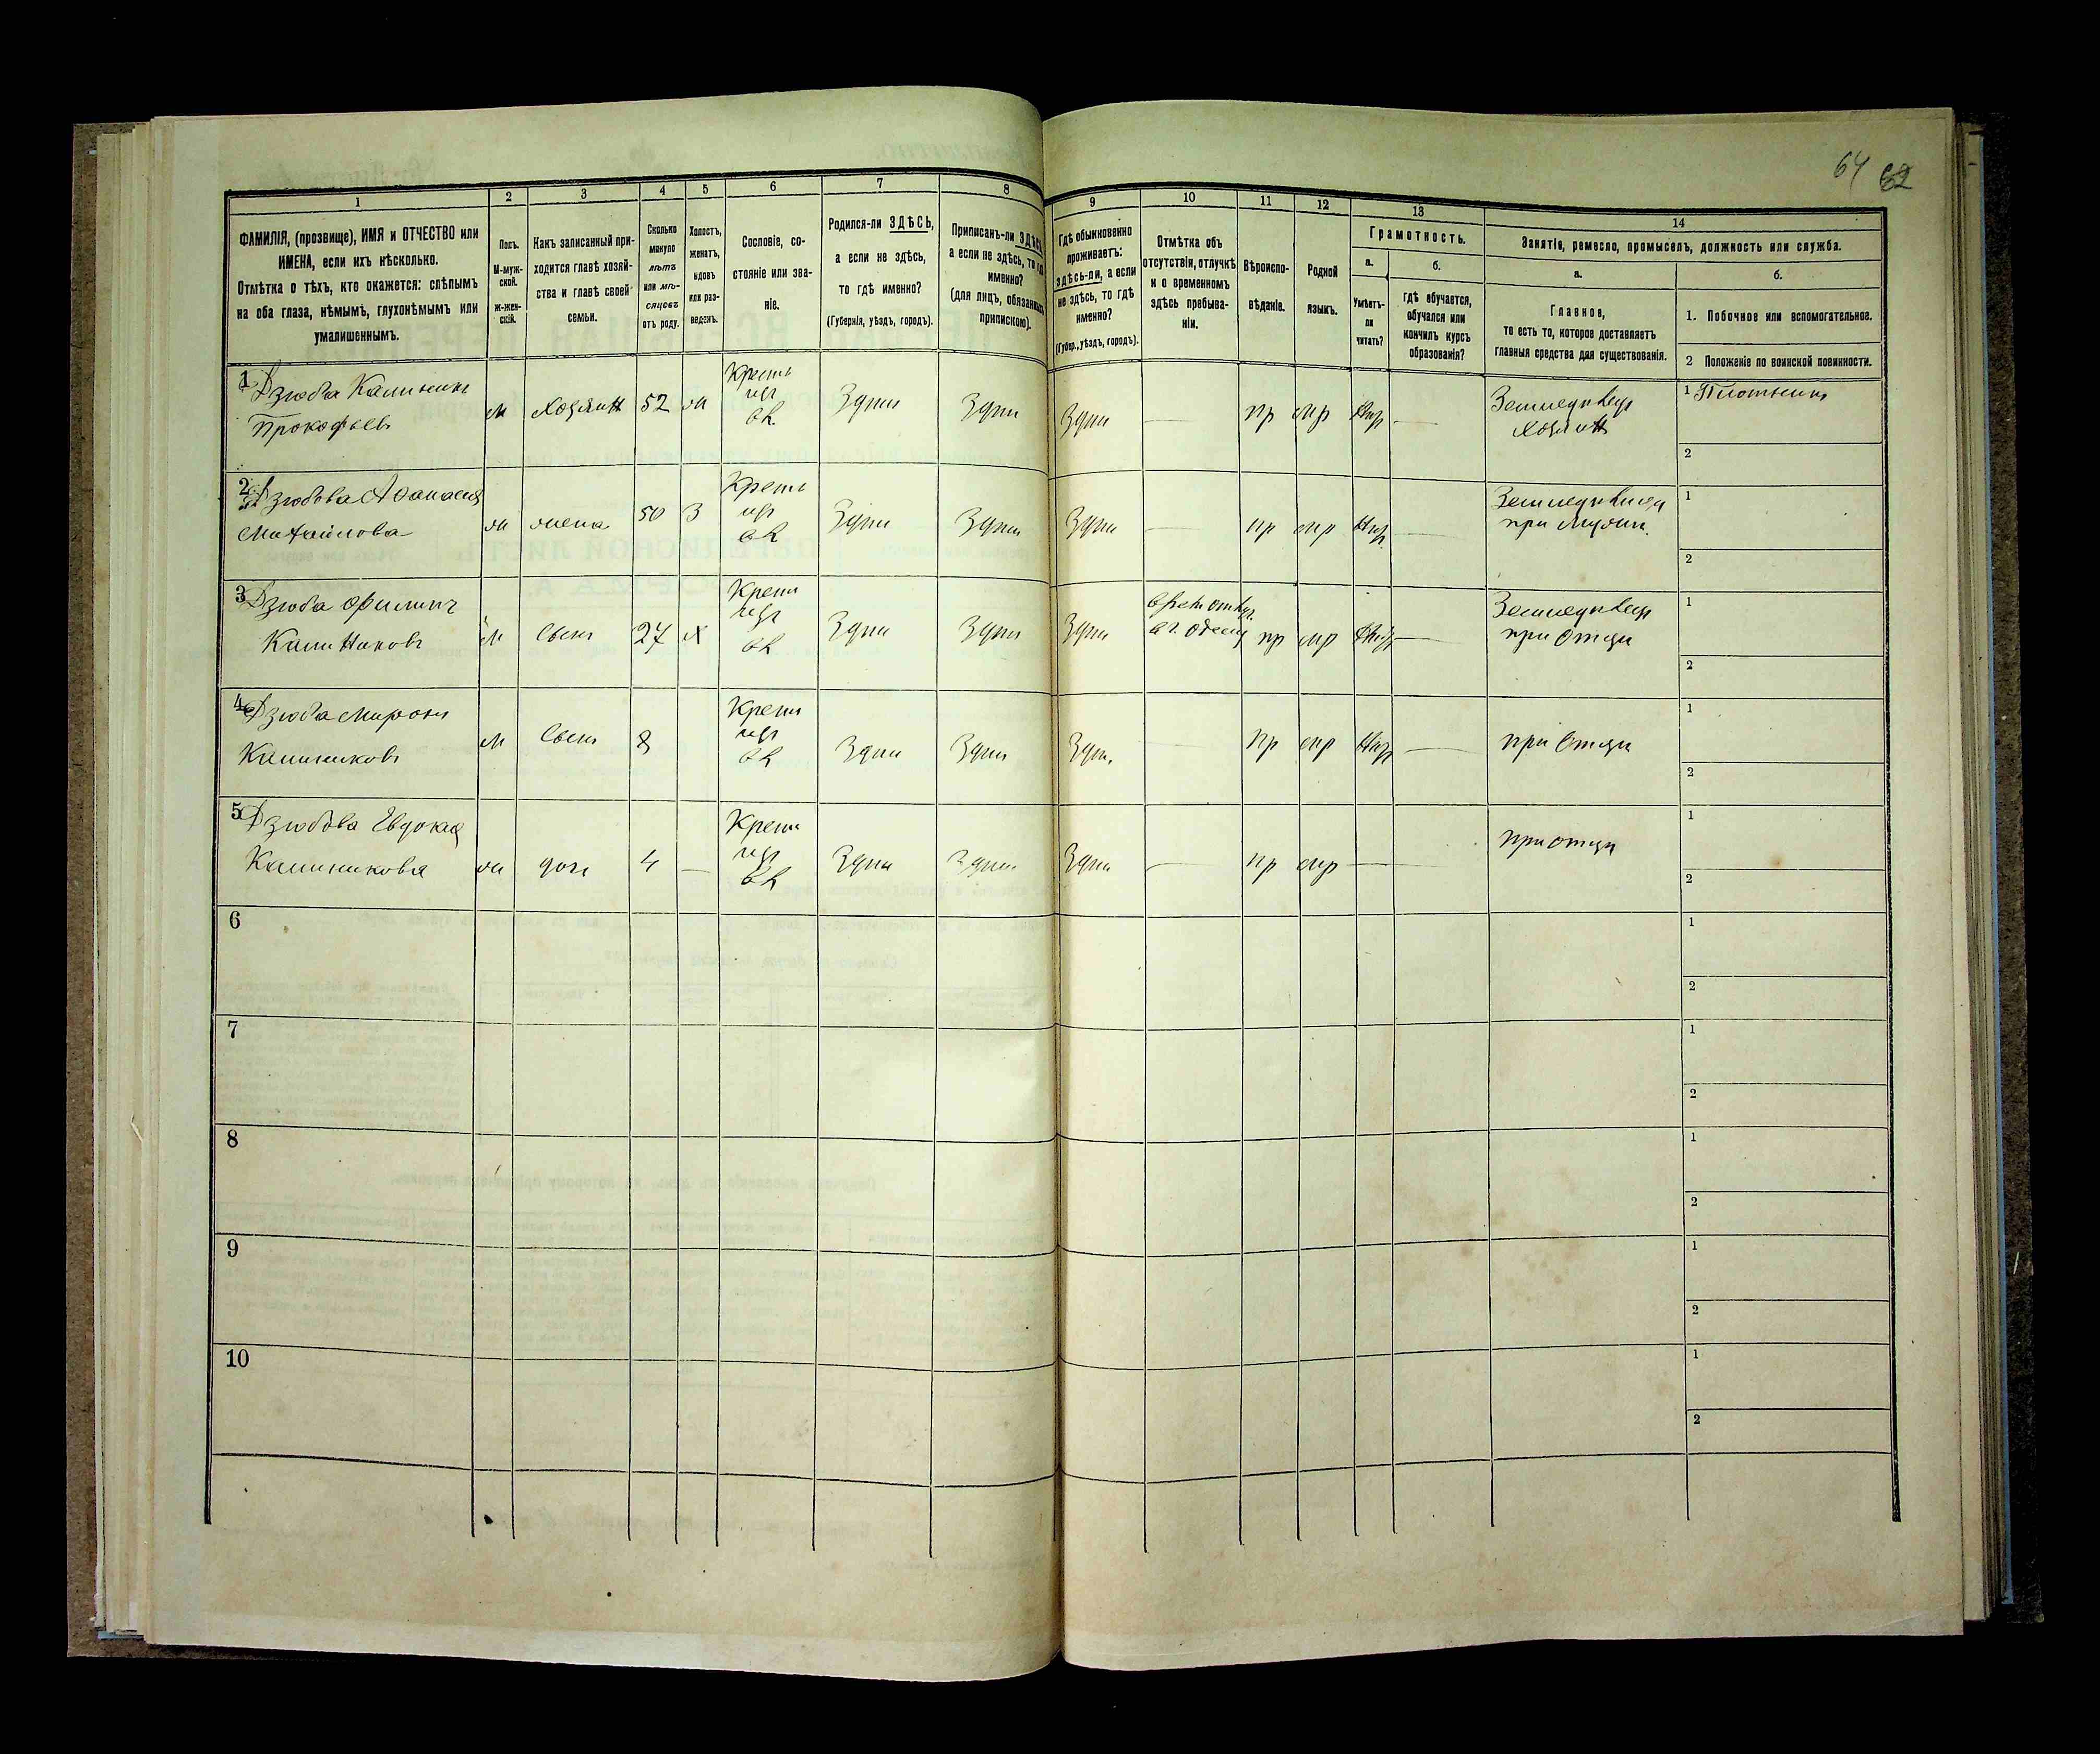 64 62
1 2 3 4 5 6 7 8 9 10 11 12 13 14
ФАМИЛІЯ, (прозвище), ИМЯ и ОТЧЕСТВО или
ИМЕНА, если ихъ нѣсколько.
Отмѣтка о тѣхъ, кто окажется: слѣпымъ
на оба глаза, нѣмымъ, глухонѣмымъ или
умалишеннымъ.
Полъ.
М-муж-
ской.
Ж-жен-
скій.
Какъ записанный при-
ходится главѣ хозяй-
ства и главѣ своей
семьи.
Сколько
минуло
лѣтъ
или мѣ-
сяцевъ
отъ роду.
Холостъ,
женатъ,
вдовъ
или раз-
веденъ.
Сословіе, со-
стояніе или зва-
ніе.
Родился-ли ЗДѢСЬ,
а если не здѣсь,
то гдѣ именно?
(Губернія, уѣздъ, городъ).
Приписанъ-ли ЗДѢСЬ,
а если не здѣсь, то гдѣ
именно?
(для лицъ, обязанныхъ
припискою).
Гдѣ обыкновенно
проживаетъ:
здѣсь-ли, а если
не здѣсь, то гдѣ
именно?
(Губер., уѣздъ, городъ).
Отмѣтка объ
отсутствіи, отлучкѣ
и о временномъ
здѣсь пребыва-
ніи.
Вѣроиспо-
вѣданіе.
Родной
языкъ.
Грамотность.
а.
Умѣетъ-
ли
читать?
б.
гдѣ обучается,
обучался или
кончилъ курсъ
образованія?
Занятіе, ремесло, промыселъ, должность или служба.
а.
Главное,
то есть то, которое доставляетъ
главныя средства для существованія.
б.
1. Побочное или вспомогательное.
2 Положеніе по воинской повинности.
1 Дзюба Калиникъ
Прокофьевъ
м Хозяинъ 52 ж Здесь Здесь Здесь — пр мр —
Хозяинъ
1 Плотникъ
2
2 Дзюбова Афанасия
Михайлова
ж жена 50 З Здесь Здесь Здесь — пр мр —
1
2
3 Дзюба Филипъ
Калиниковъ
м Сынъ 27 х Здесь Здесь Здесь пр мр —
при Отце
1
2
4 Дзюба Миронъ
Калиниковъ
м Сынъ 8 Здесь Здесь Здесь — пр мр —
при Отце
1
2
5 Дзюбова Евдокия
Калиникова
ж дочь 4 — Здесь Здесь Здесь — пр мр —
при отце
1
2
6
1
2
7
1
2
8
1
2
9
1
2
10
1
2